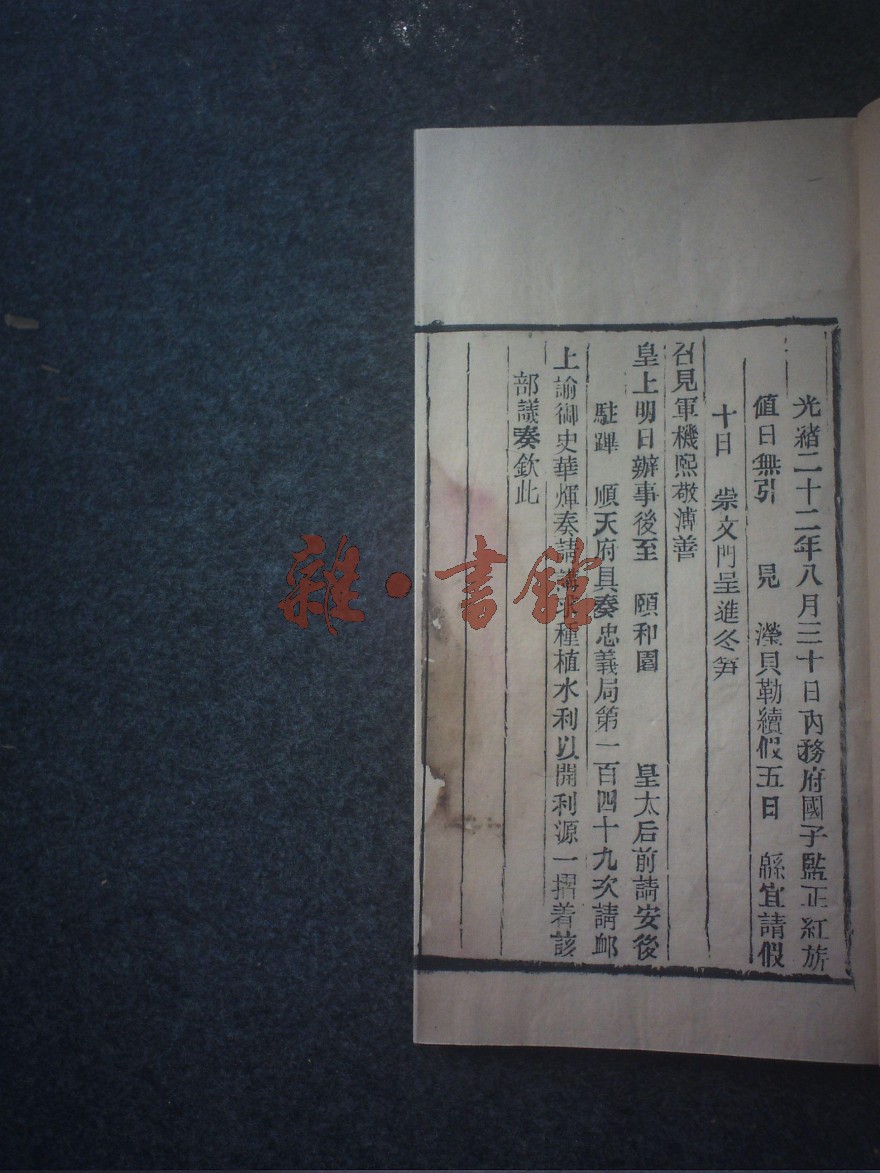 光緒二十二年八月三十日內務府國子監正紅旗
值日無引　見　瀅貝勒續假五日　緜宜請假
十日　崇文門呈進冬笋
召見軍機熙敬溥善
皇上明日辦事後至　頤和園　皇太后前請安後
駐蹕　順天府具奏忠義局第一百四十九次請卹
上諭御史華煇奏請講求種植水利以開利源一摺着該
部議奏欽此
雜·書館